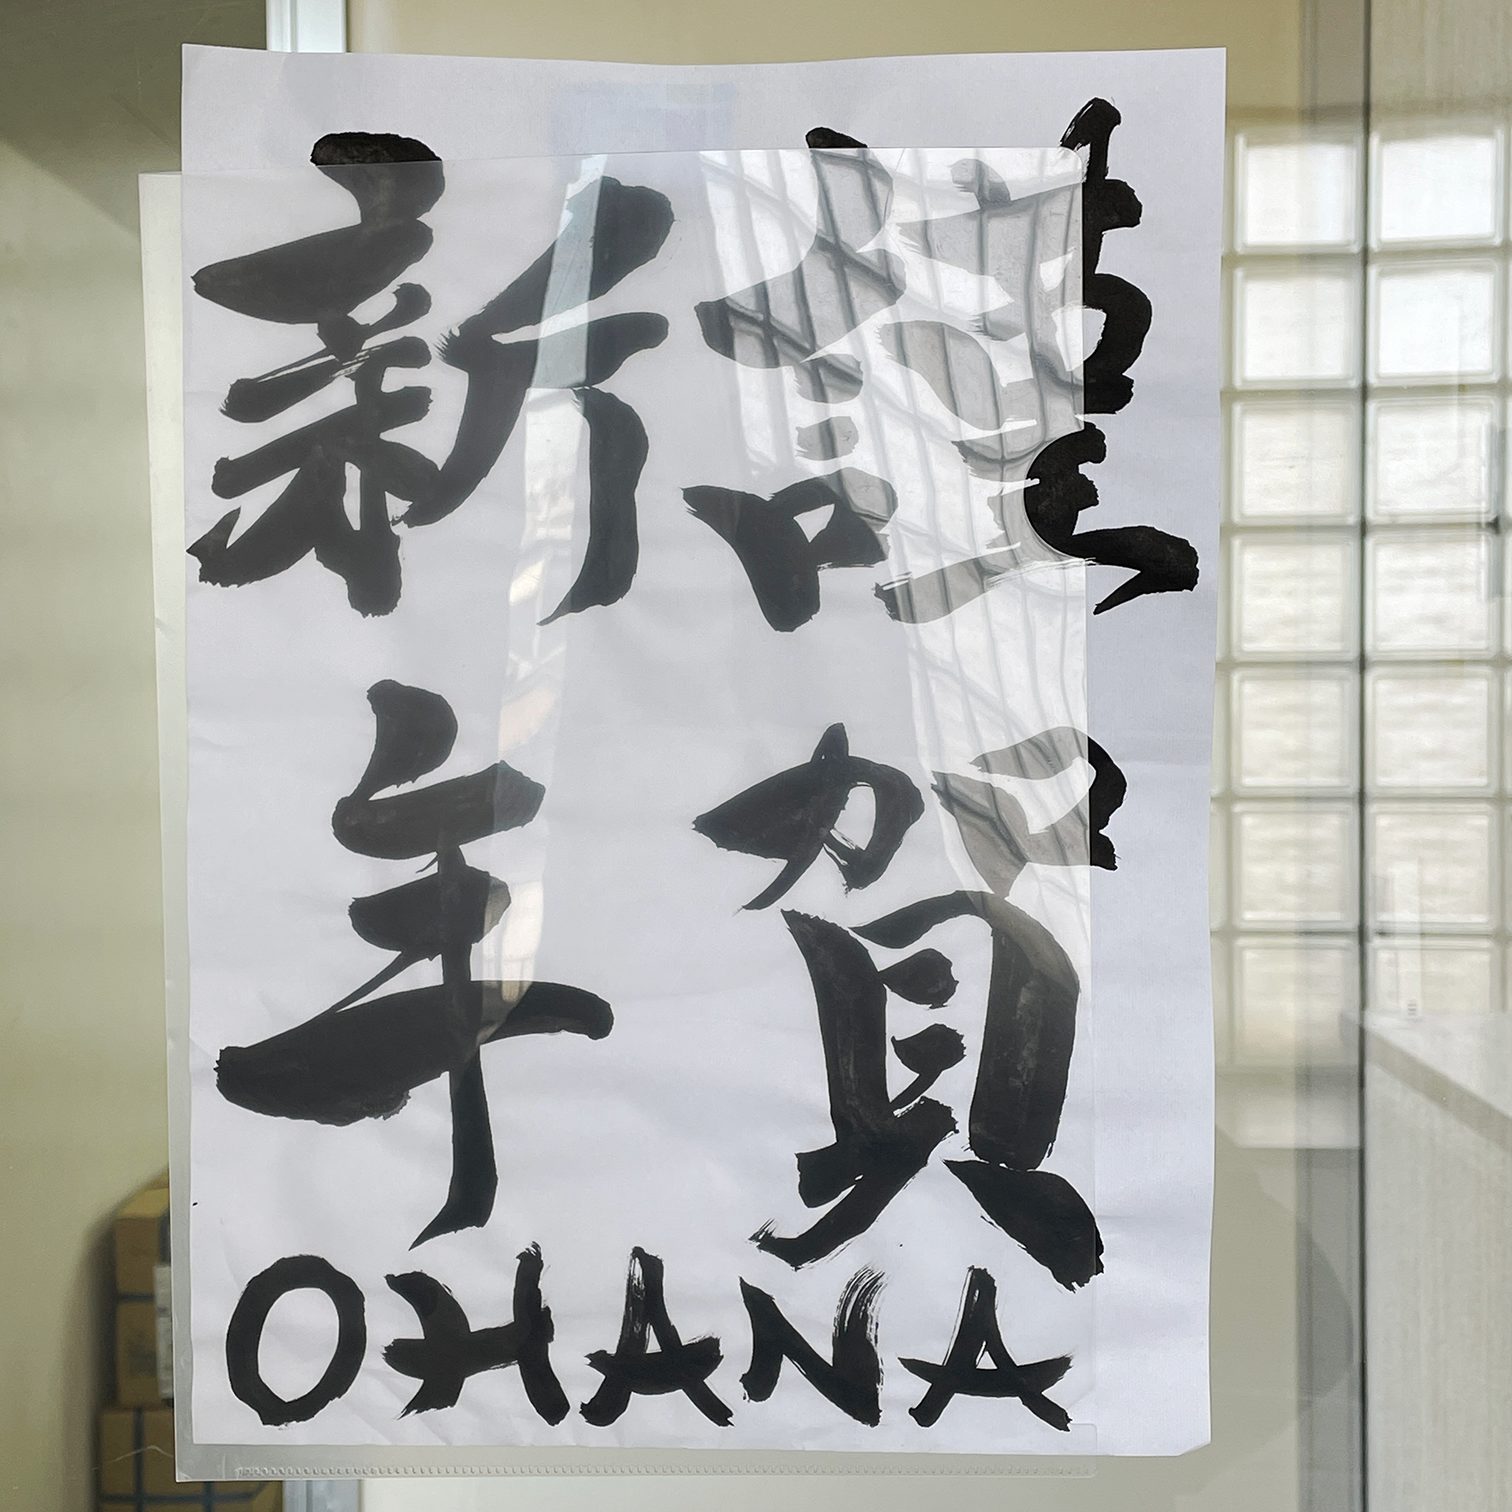 謹賀
新年
OHANA